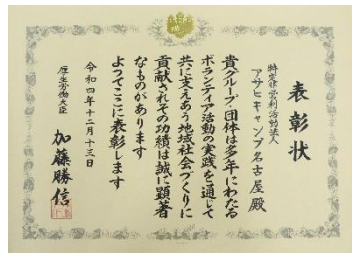 表彰状
特定非営利活動法人
アサヒキャンプ名古屋 殿
貴グループ・団体は多年にわたる
ボランティア活動の実践を通じて
共に支えあう地域社会づくりに
貢献されその功績は誠に顕著
なものがあります
よってここに表彰します
令和四年十二月十三日
厚生労働大臣
加藤勝信